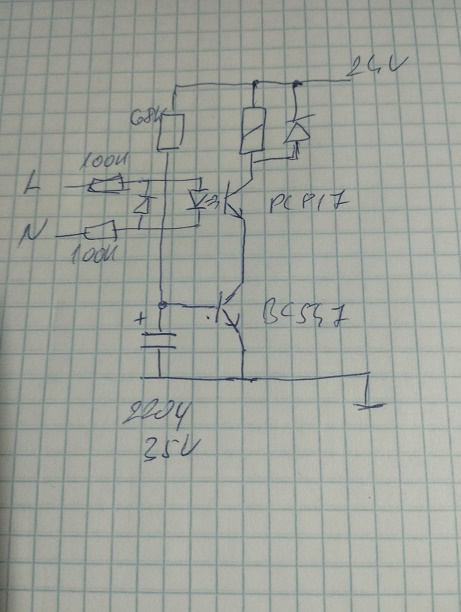 24V
68K
100K
L
PC817
N
100K
BC547
+
220µ
35V